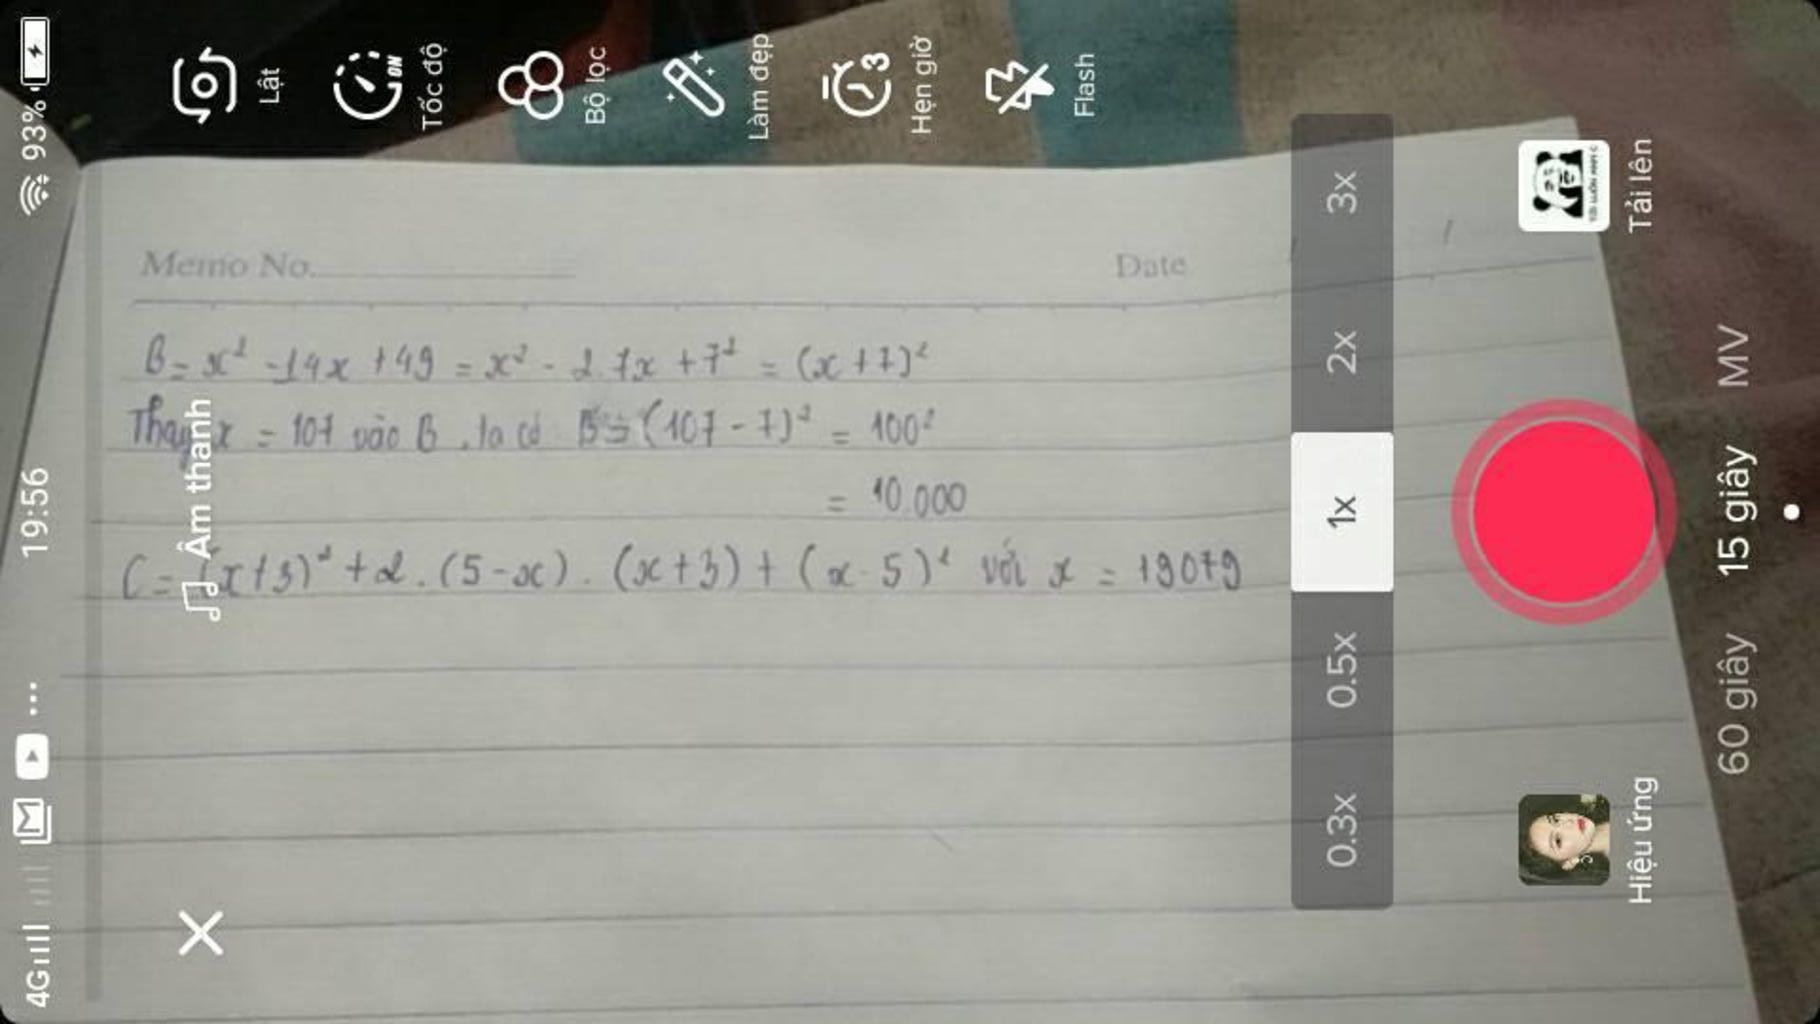 Memo No. Date / /
B = x² - 14x + 49 = x² - 2.7x + 7² = (x + 7)²
Thay x = 107 vào B, ta có B = (107 - 7)² = 100²
= 10.000
C = (x+3)² + 2.(5-x).(x+3) + (x-5)² với x = 19079
4G 19:56 93%
Âm thanh
Lật
Tốc độ
ON
Bộ lọc
Làm đẹp
Hẹn giờ
3
Flash
0.3x 0.5x 1x 2x 3x
Hiệu ứng
Tải lên
60 giây 15 giây MV